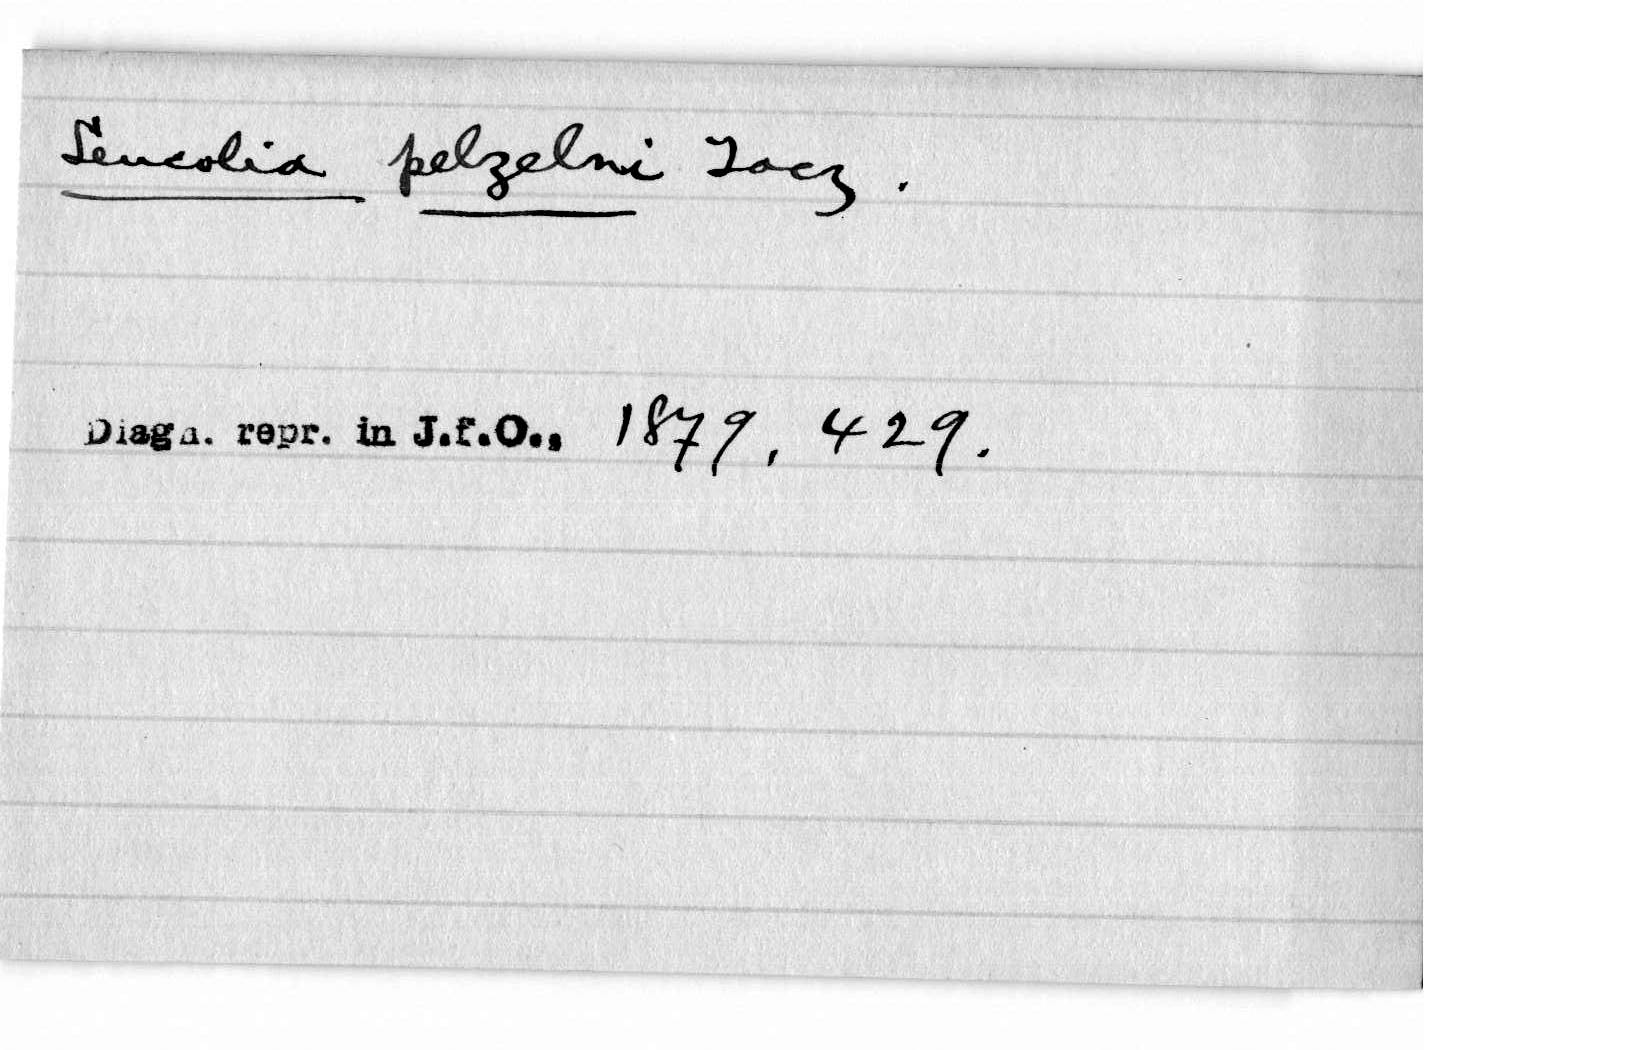 Leucolia pelzelni Tacz.
Diagn. repr. in J.f.O., 1879, 429.